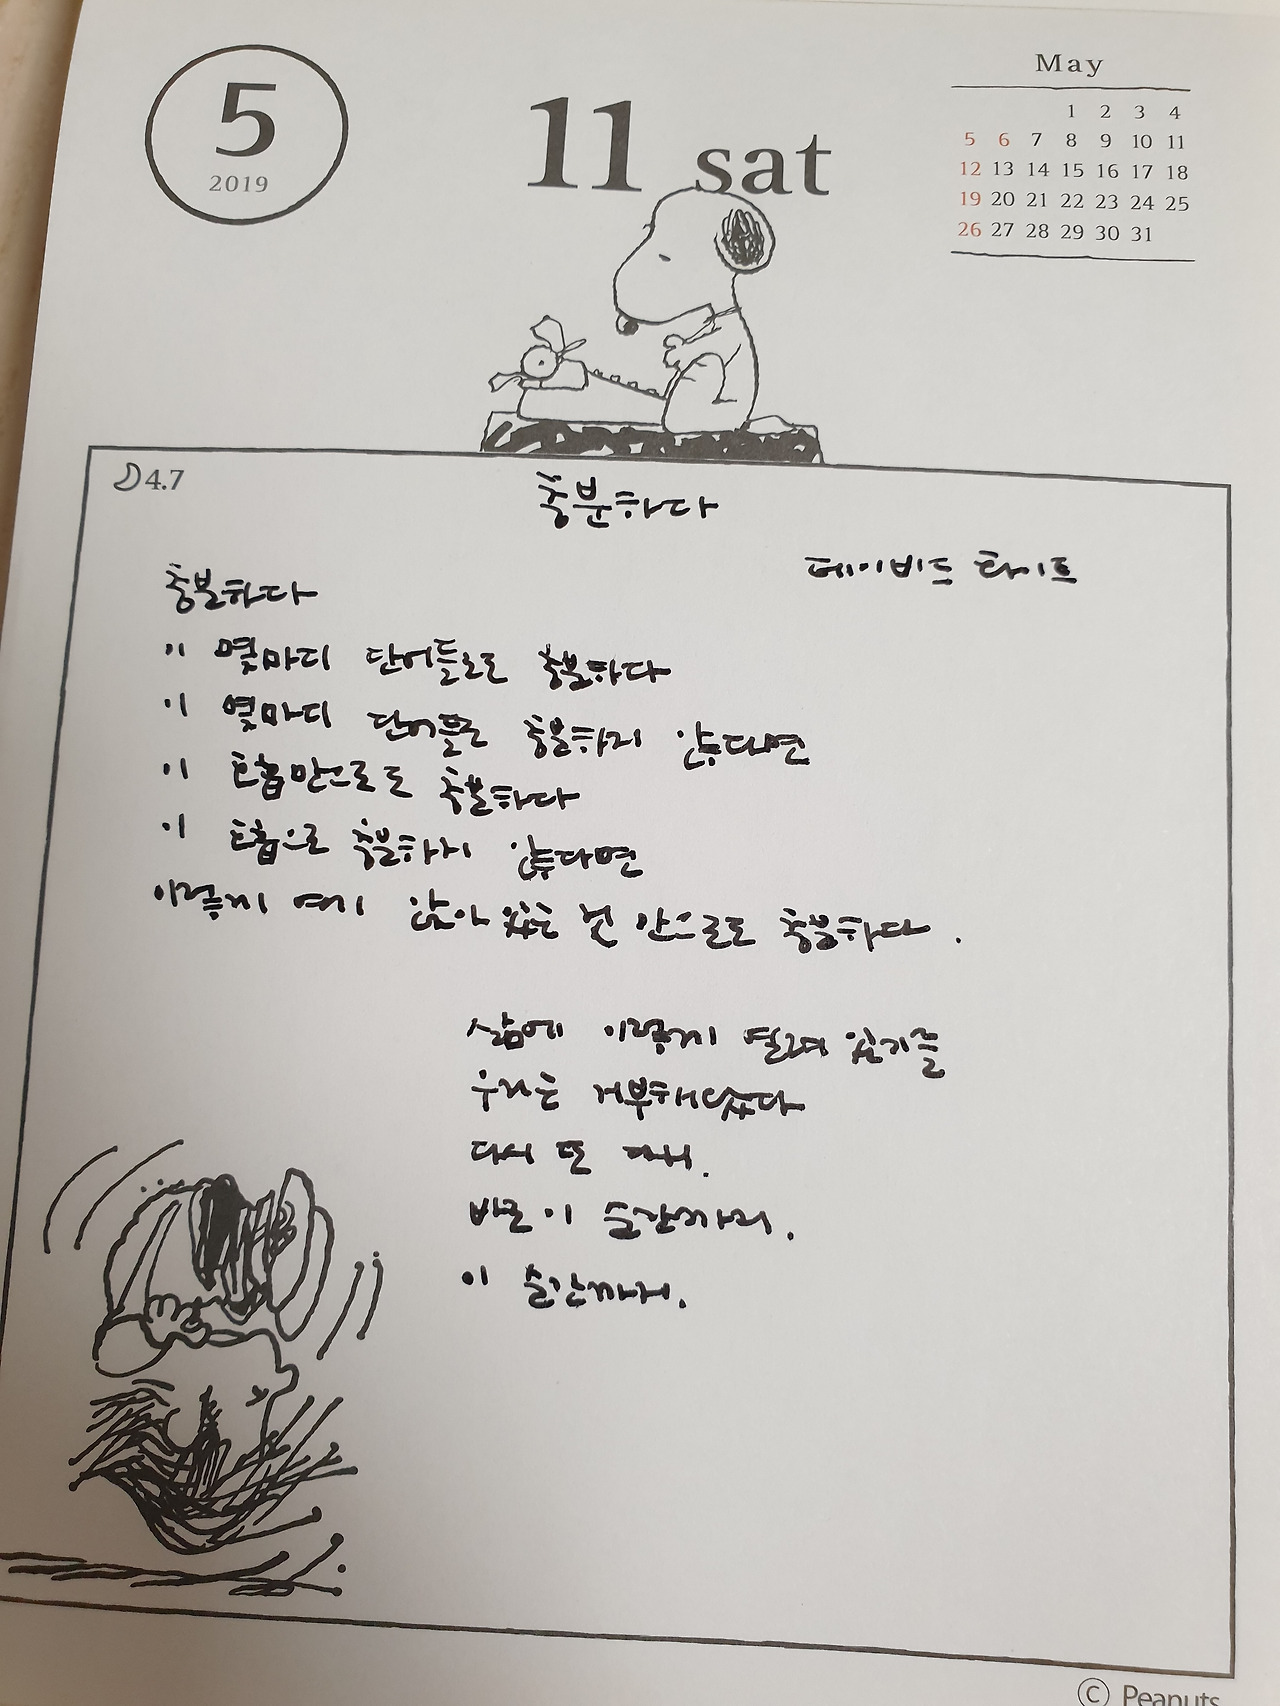 5
2019
11 sat
May
1 2 3 4
5 6 7 8 9 10 11
12 13 14 15 16 17 18
19 20 21 22 23 24 25
26 27 28 29 30 31
4.7
충분하다
데이비드 화이트
충분하다
이 몇마디 단어들로도 충분하다
이 몇마디 단어들로 충분하지 않다면
이 호흡만으로도 충분하다
이 호흡으로 충분하지 않다면
이렇게 여기 앉아 있는 것 만으로도 충분하다.
삶에 이렇게 열려 있기를
우리는 거부해왔다
다시 또 다시.
바로 이 순간까지.
이 순간까지.
© Peanuts